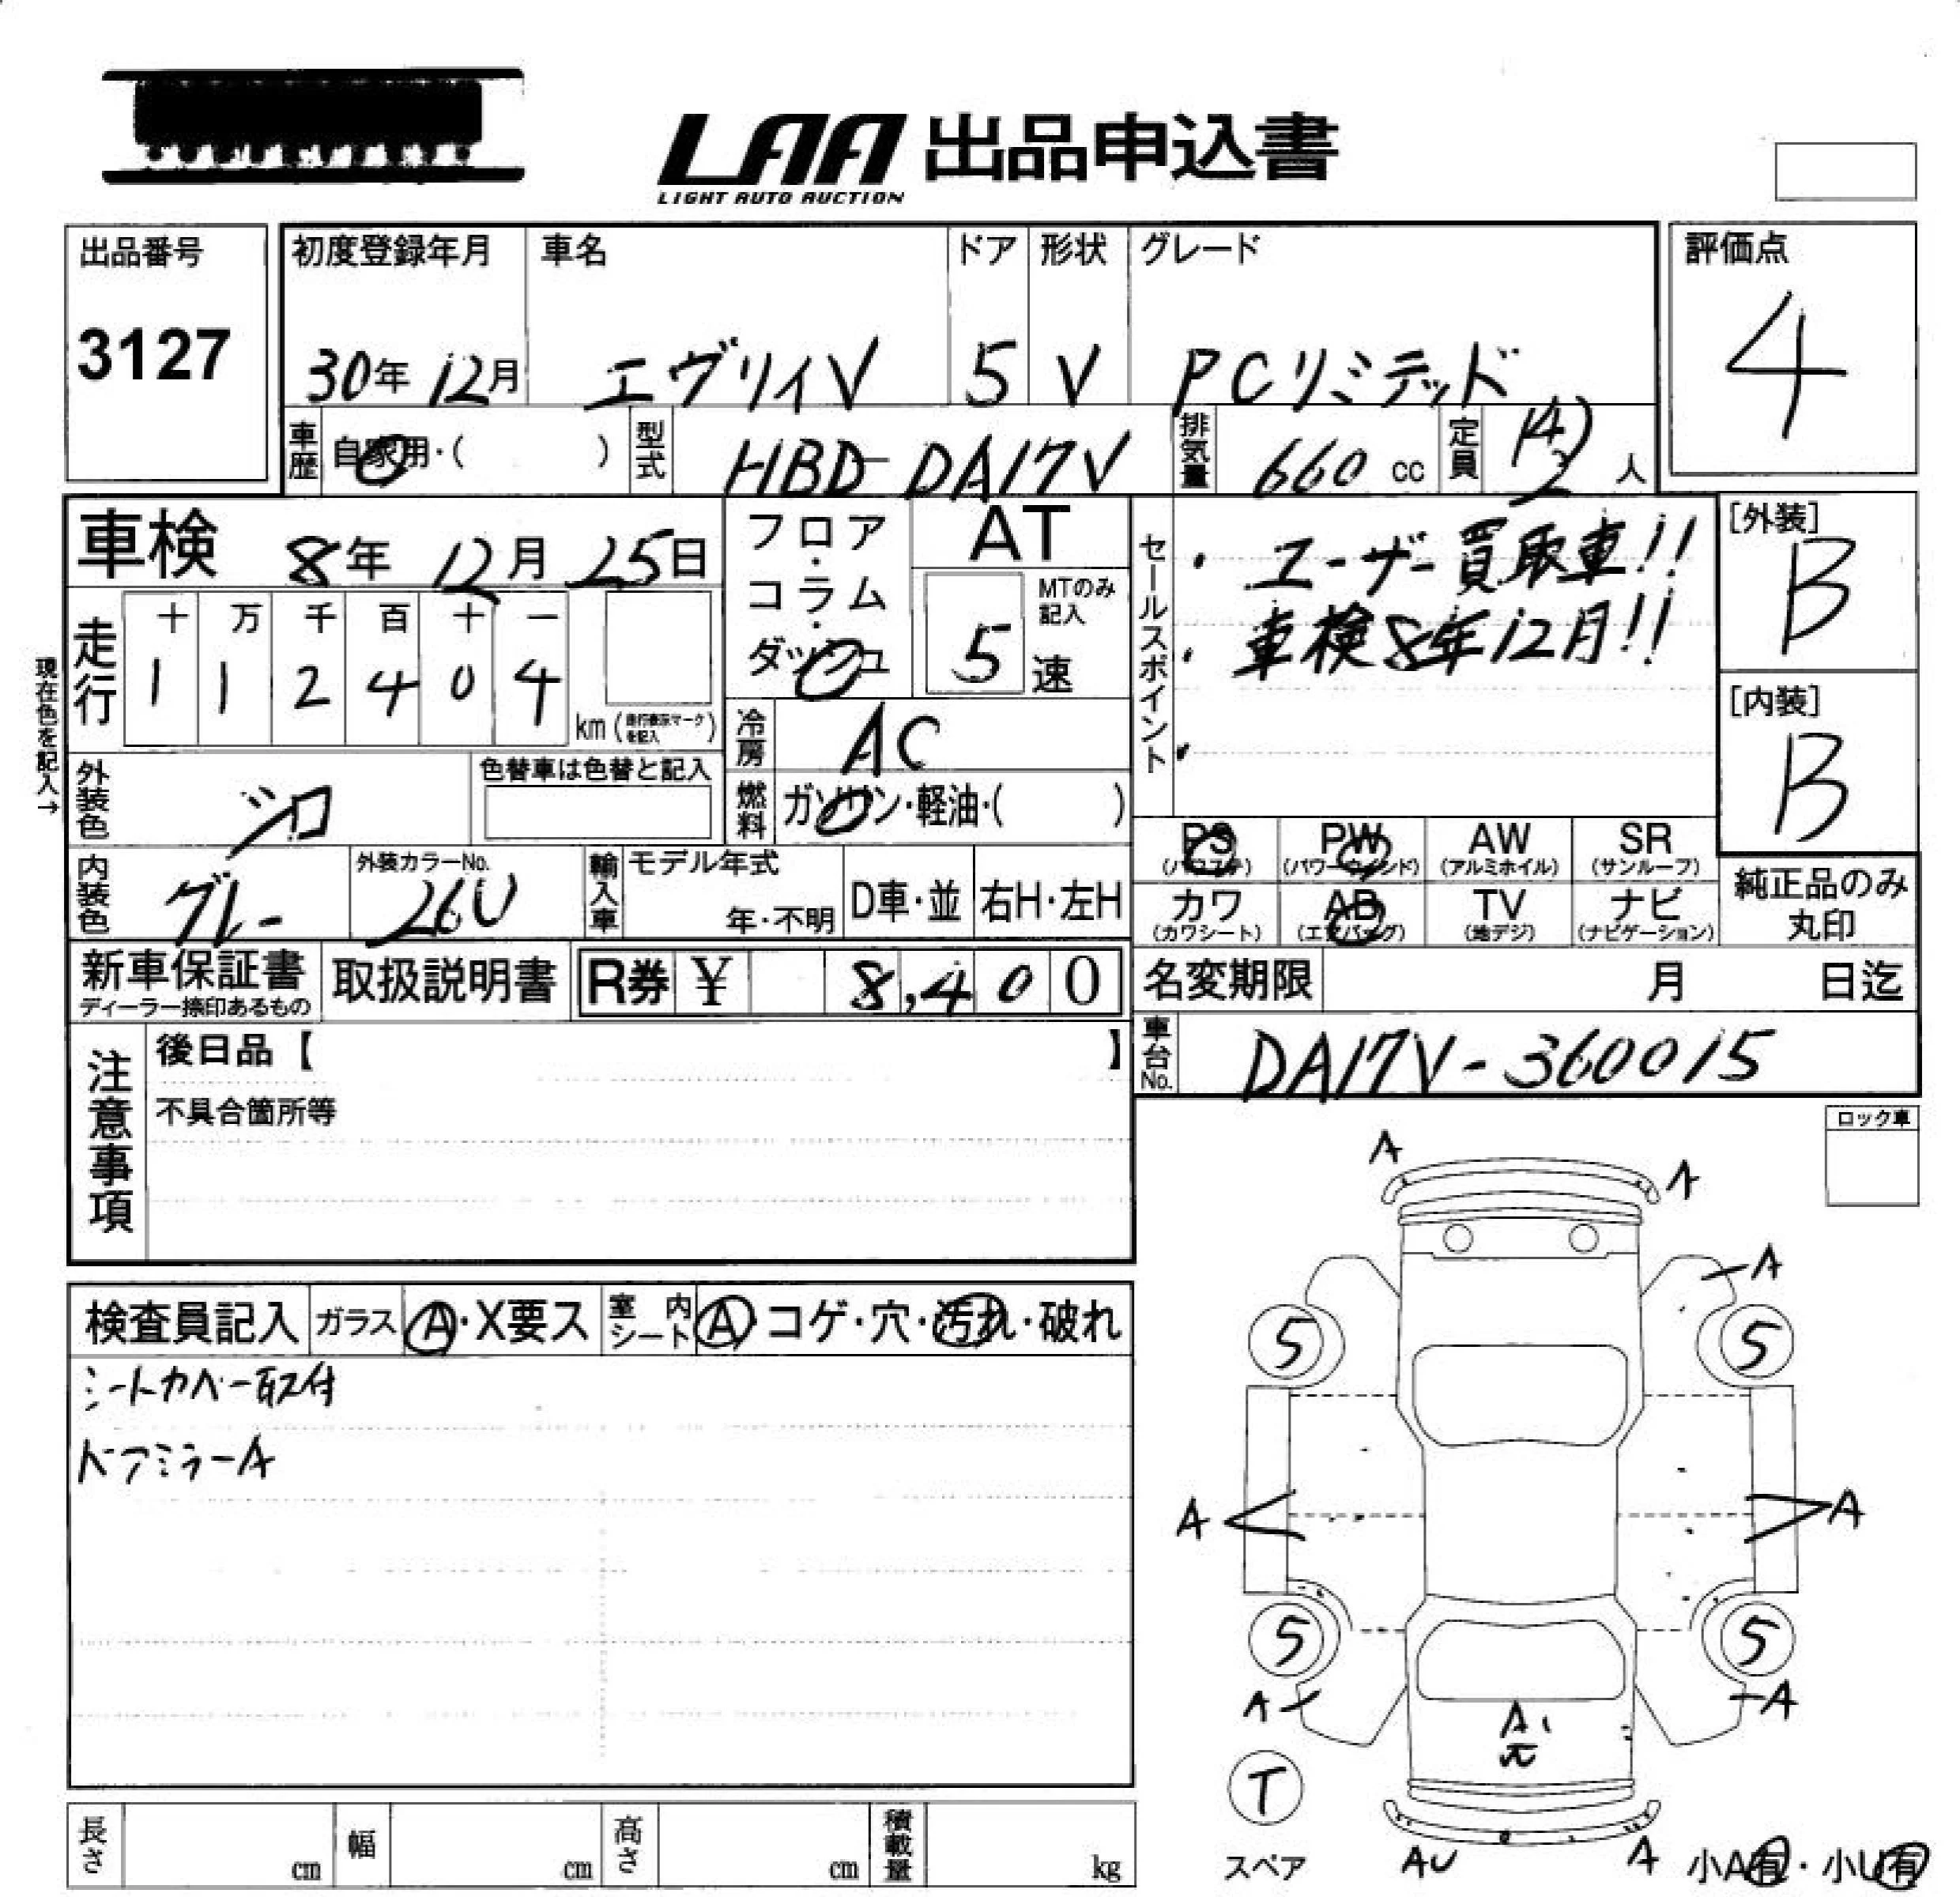 LAA 出品申込書
LIGHT AUTO AUCTION
出品番号
3127
初度登録年月 車名 ドア 形状 グレード
30年 12月 エヴリイV 5 V PCリミテッド
評価点
4
車歴 自家用・( ) 型式 HBD-DA17V 排気量 660 cc 定員 2(4) 人
車検 8年 12月 25日
フロア・コラム・ダッシュ
AT
MTのみ記入
5 速
セールスポイント
・ユーザー買取車!!
・車検8年12月!!
・
[外装]
B
[内装]
B
現在色を記入→
走行 十 万 千 百 十 一
1 1 2 4 0 4
km (走行表示マークを記入)
冷房 AC
外装色 シロ
色替車は色替と記入
燃料 ガソリン・軽油・( )
PS (パワステ) PW (パワーウィンド) AW (アルミホイル) SR (サンルーフ)
カワ (カワシート) AB (エアバッグ) TV (地デジ) ナビ (ナビゲーション)
純正品のみ丸印
内装色 グレー
外装カラーNo. 26U
輸入車 モデル年式 年・不明 D車・並 右H・左H
新車保証書 ディーラー捺印あるもの
取扱説明書
R券 ¥ 8,400
名変期限 月 日迄
車台No. DA17V-360015
注意事項
後日品【 】
不具合箇所等
ロック車
検査員記入 ガラス A・X要ス 室内シート A コゲ・穴・汚れ・破れ
シートカバー取付
ドアミラーA
A
A
A
5 5
A A
5 5
A A
A1
元
T
スペア
AU A
小A有・小U有
長さ cm 幅 cm 高さ cm 積載量 kg